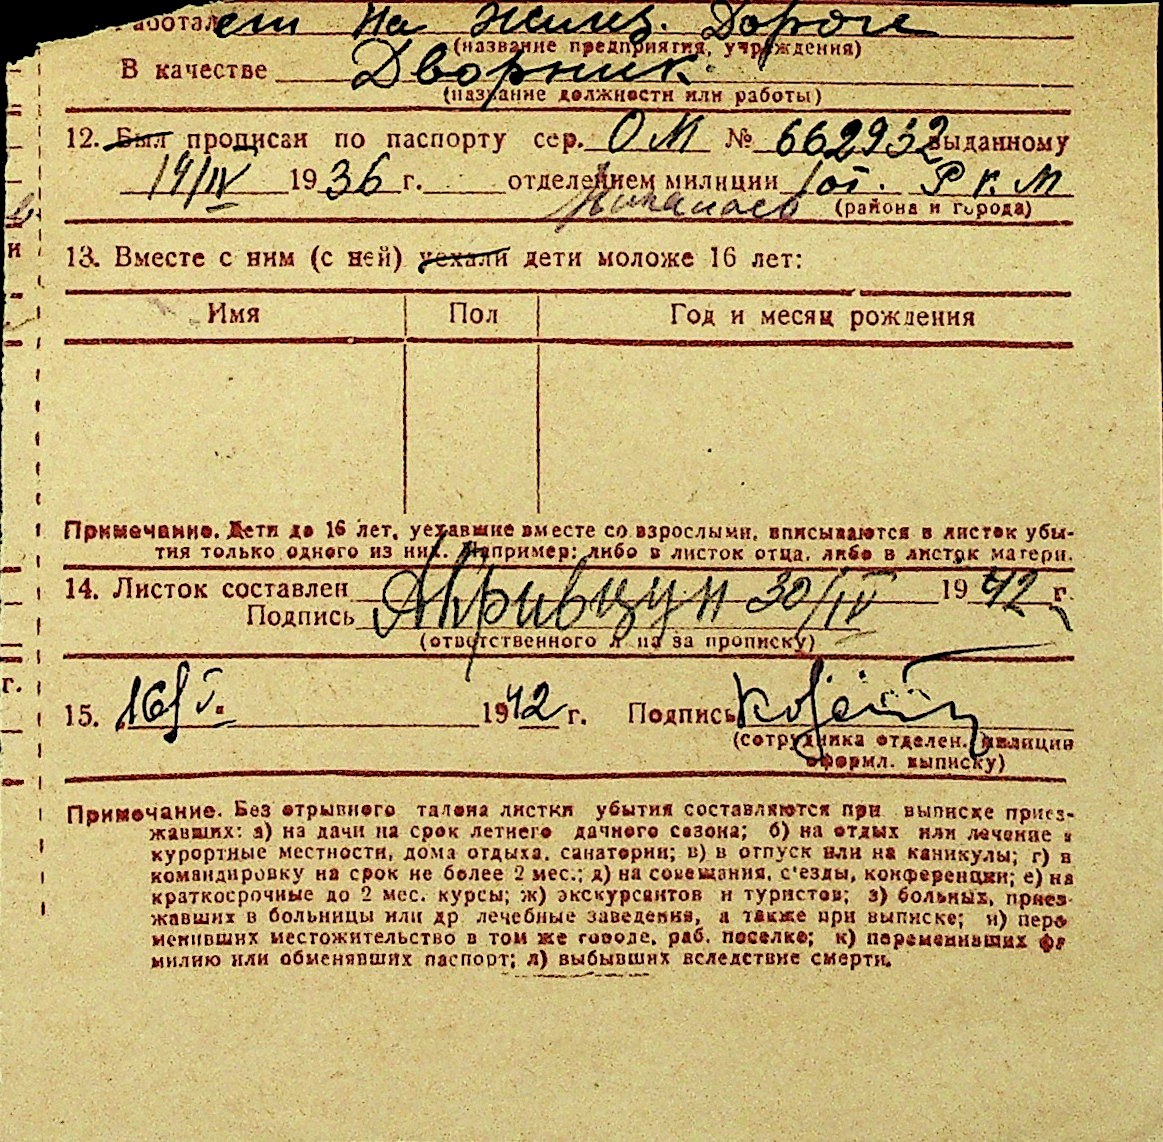 Работает на Желез. Дороге
(название предприятия, учреждения)
В качестве Дворник.
(название должности или работы)
12. Был прописан по паспорту сер. ОМ № 662932 выданному
14/IV 1936 г. отделением милиции
(района и города)
13. Вместе с ним (с ней) уехали дети моложе 16 лет:
Имя Пол Год и месяц рождения
Примечание. Дети до 16 лет, уехавшие вместе со взрослыми, вписываются в листок убы-
тия только одного из них. Например: либо в листок отца, либо в листок матери.
14. Листок составлен 30/IV 1942 г.
Подпись
(ответственного лица за прописку)
15. 16/V. 1942 г. Подпись
(сотрудника отделен. милиции
оформл. выписку)
и
г.
Примечание. Без отрывного талона листки убытия составляются при выписке приез-
жавших: а) на дачи на срок летнего дачного сезона; б) на отдых или лечение в
курортные местности, дома отдыха, санатории; в) в отпуск или на каникулы; г) в
командировку на срок не более 2 мес.; д) на совещания, с'езды, конференции; е) на
краткосрочные до 2 мес. курсы; ж) экскурсантов и туристов; з) больных, приез-
жавших в больницы или др. лечебные заведения, а также при выписке; и) пере-
менивших местожительство в том же городе, раб. поселке; к) переменивших фа-
милию или обменявших паспорт; л) выбывших вследствие смерти.